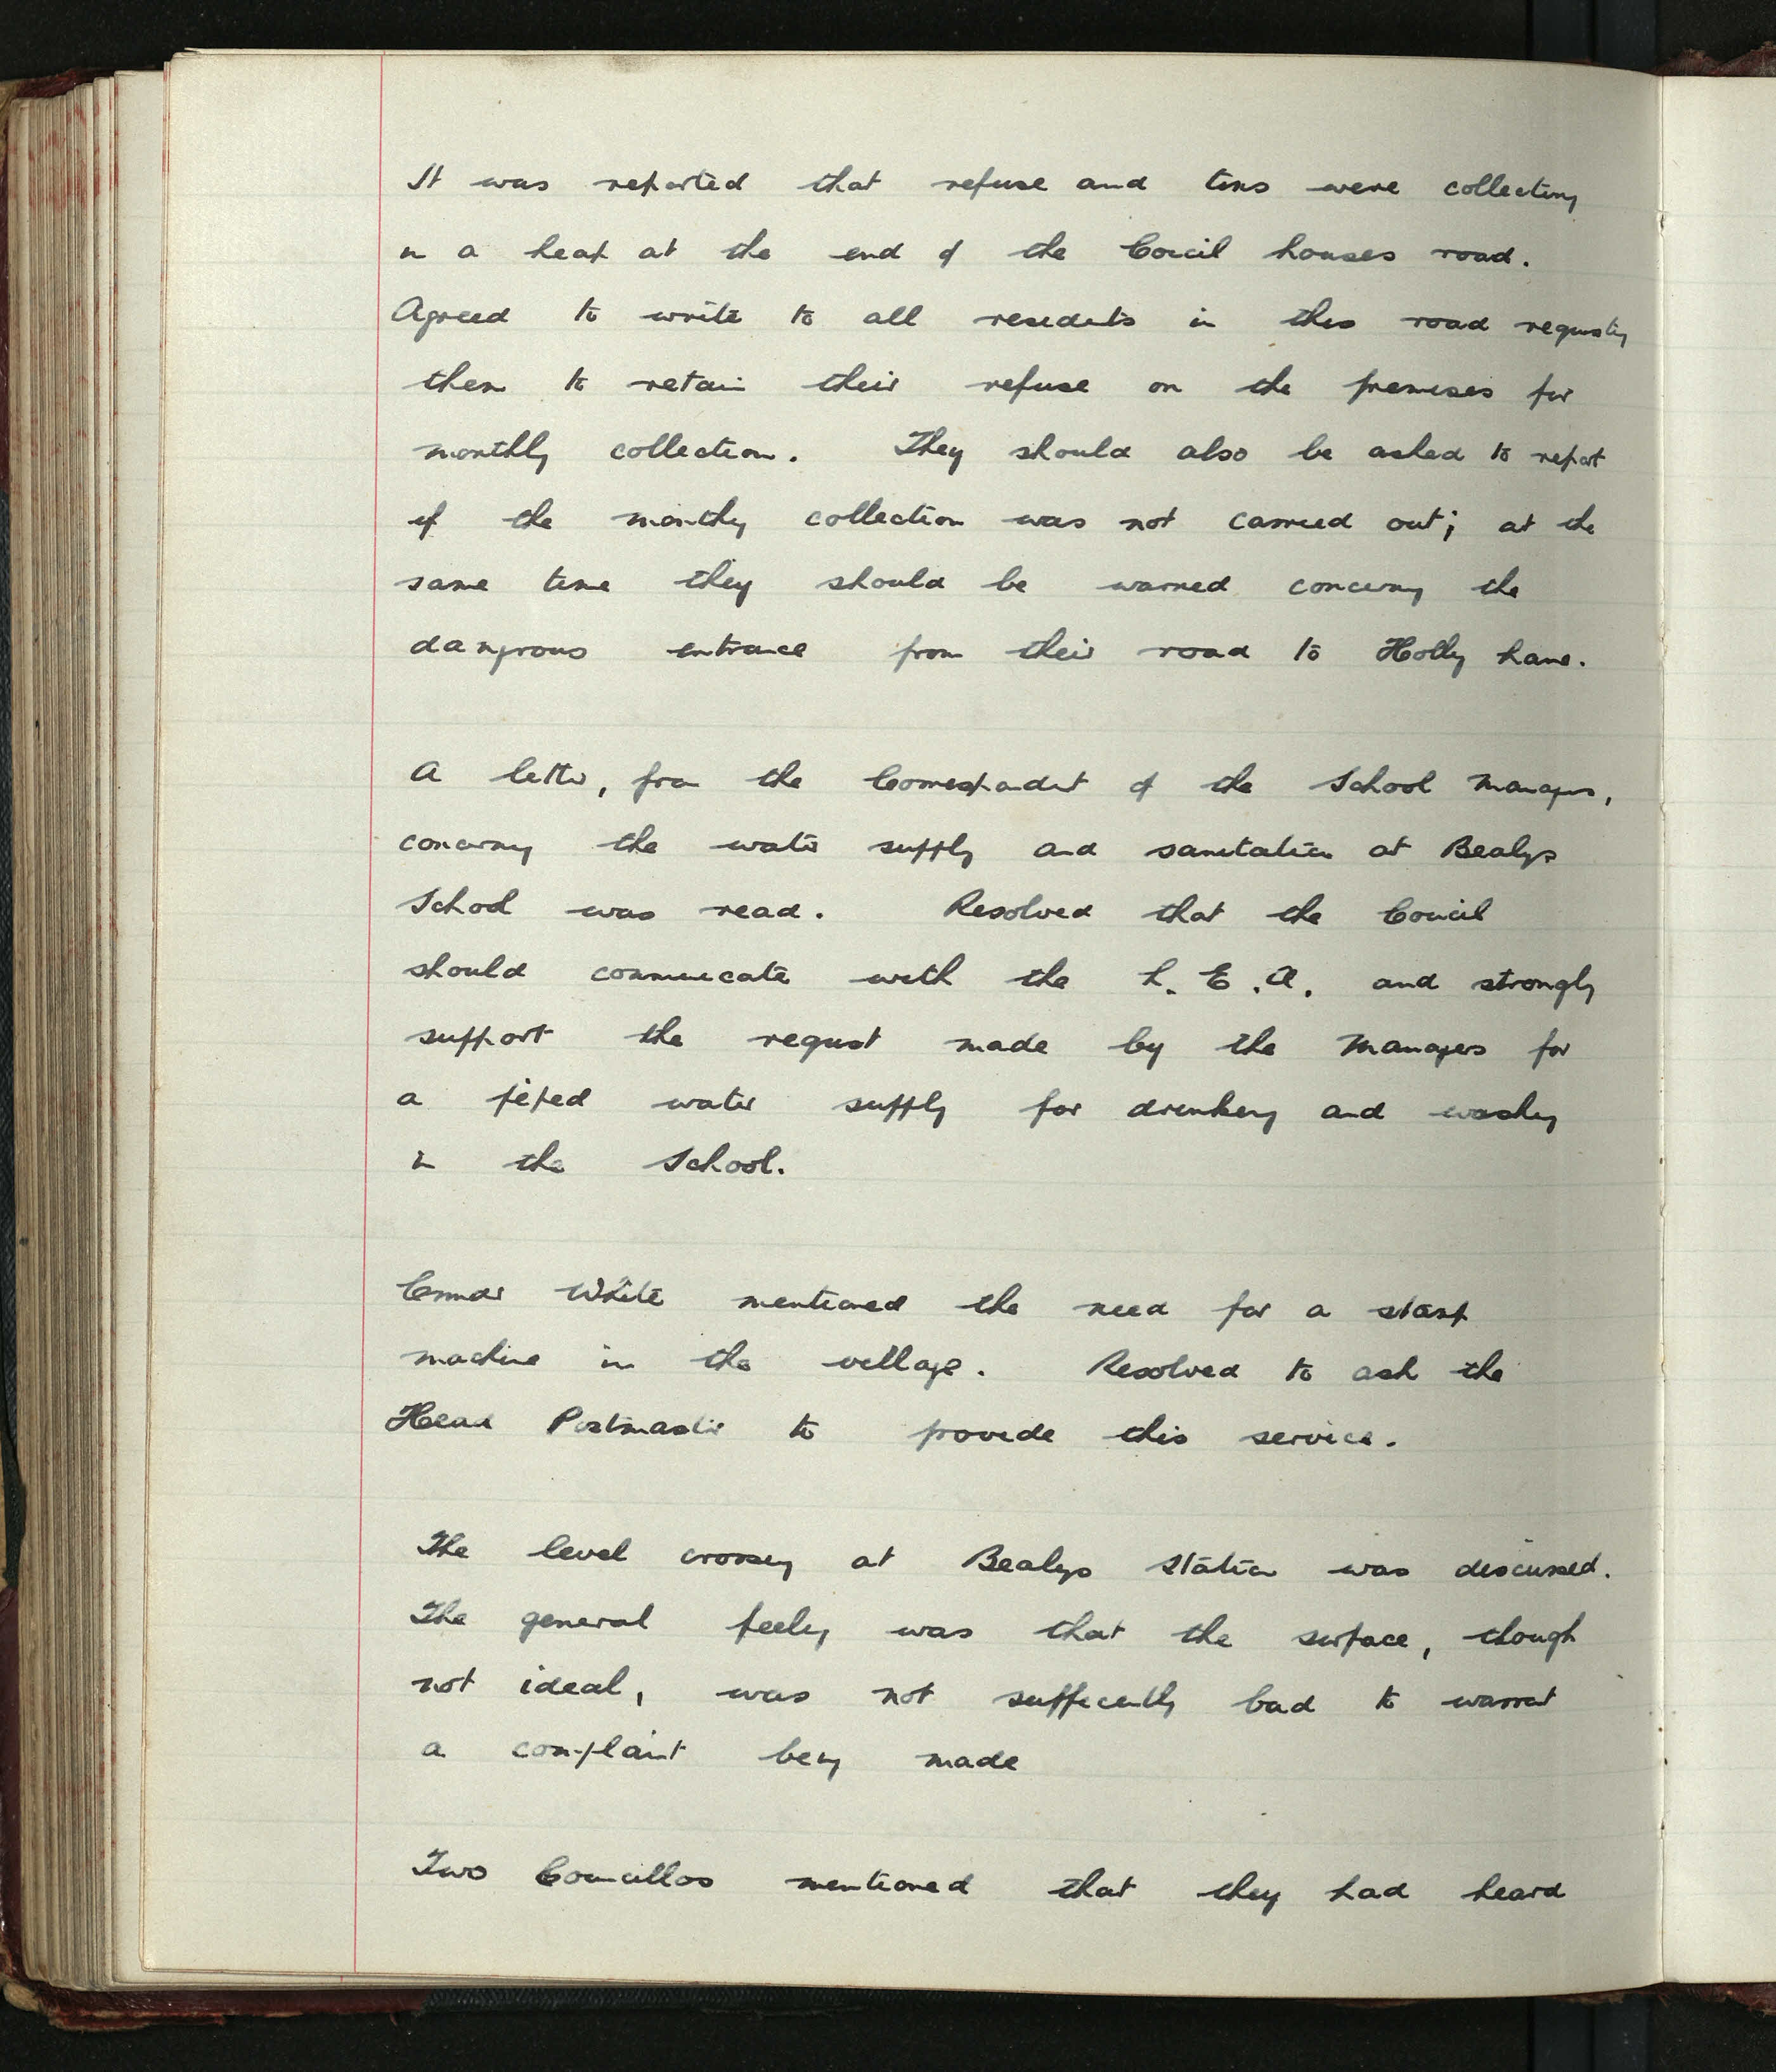 It was reported that refuse and tins were collecting
in a heap at the end of the Council houses road.
Agreed to write to all residents in this road requesting
them to retain their refuse on the premises for
monthly collection. They should also be asked to report
if the monthly collection was not carried out; at the
same time they should be warned concerning the
dangerous entrance from their road to Holly Lane.
A letter, from the Correspondent of the School Managers,
concerning the water supply and sanitation at Bealeys
School was read. Resolved that the Council
should communicate with the L.E.A. and strongly
support the request made by the Managers for
a piped water supply for drinking and washing
in the School.
White mentioned the need for a stamp
machine in the village. Resolved to ask the
Head Postmaster to provide this service.
The level crossing at Bealeys Station was discussed.
The general feeling was that the surface, though
not ideal, was not sufficiently bad to warrant
a complaint being made
Two Councillors mentioned that they had heard